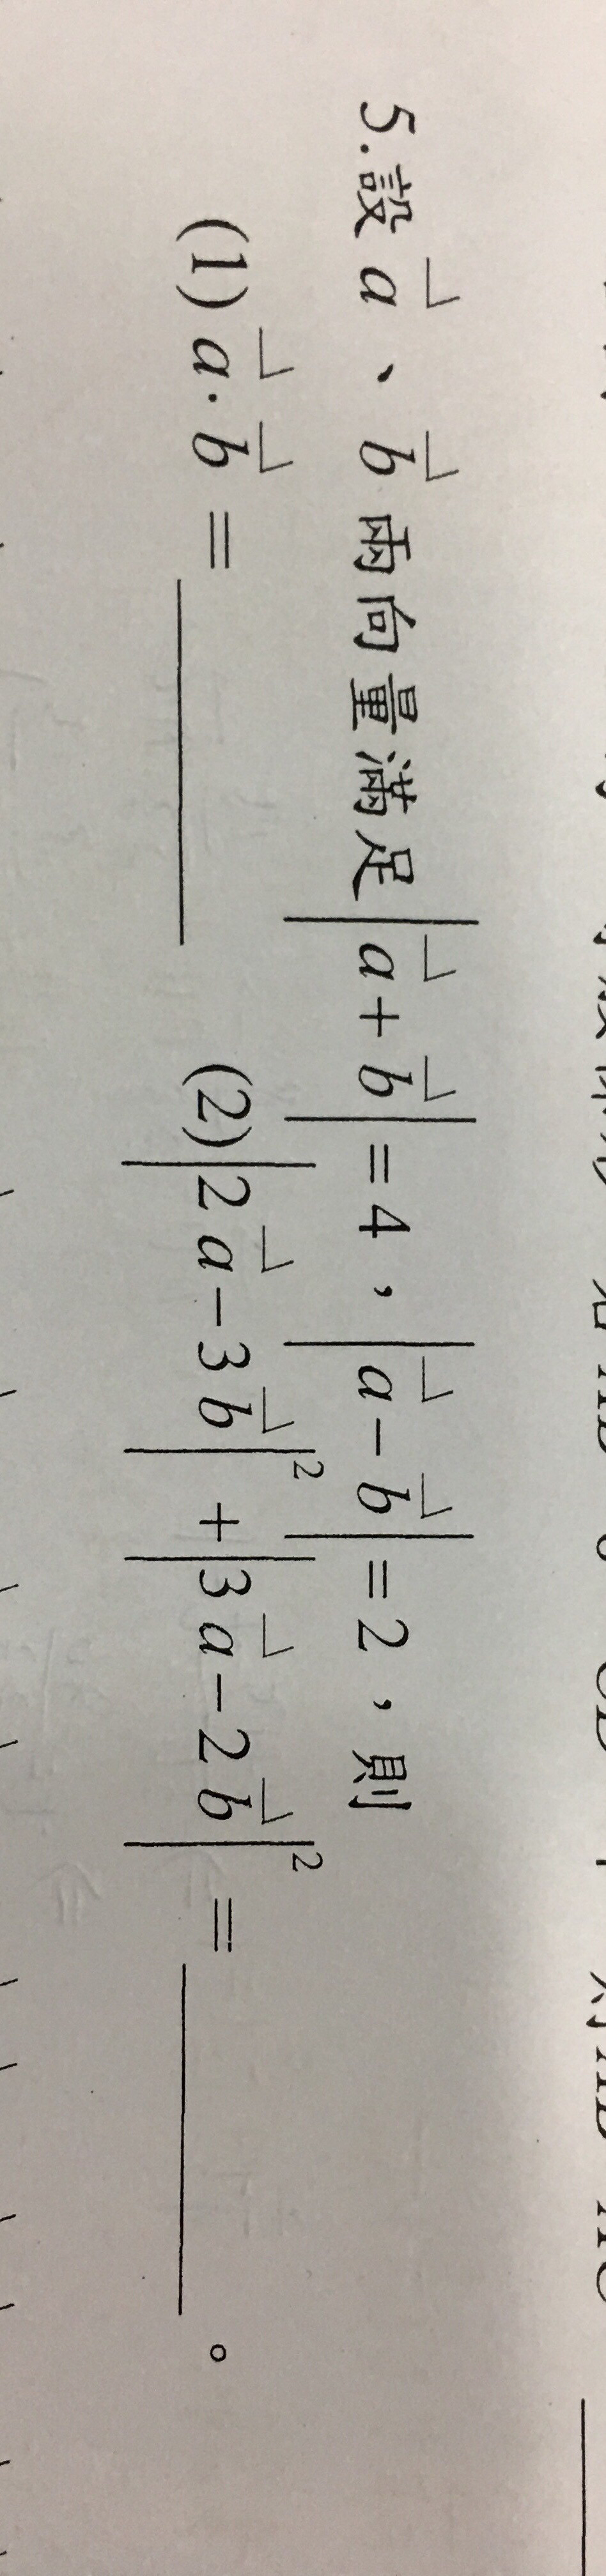 5.設 a⃑、b⃑ 兩向量滿足 |a⃑+b⃑|=4，|a⃑−b⃑|=2，則
(1) a⃑·b⃑ = ________ (2) |2a⃑−3b⃑|² + |3a⃑−2b⃑|² = ________。